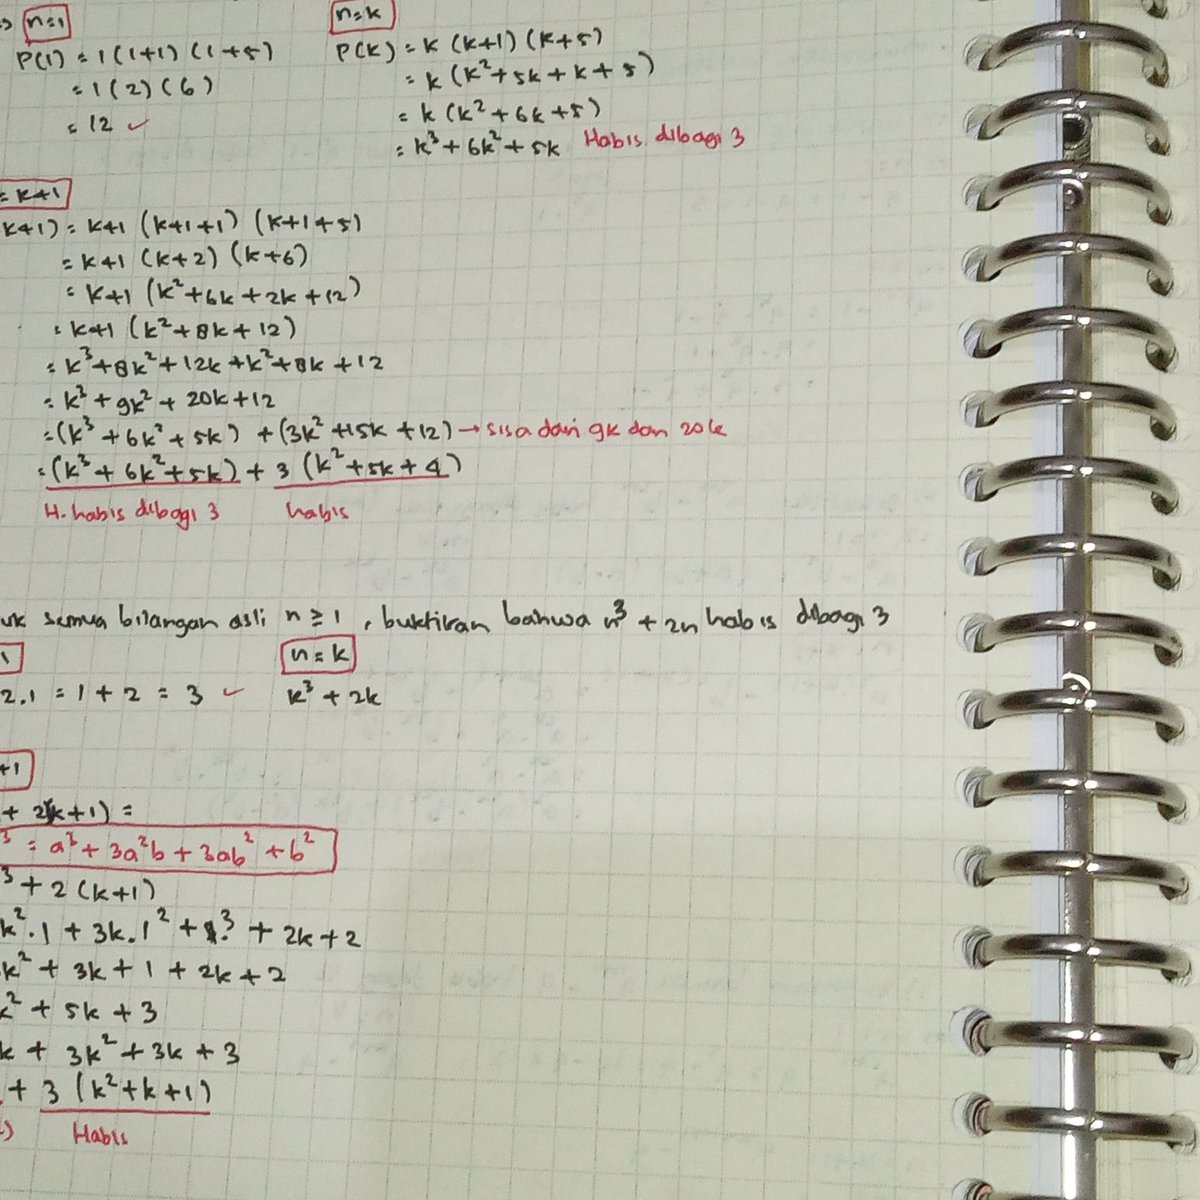 n=1
P(1) = 1(1+1) (1+5)
= 1(2)(6)
= 12 ✓
n=k
P(k) = k (k+1) (k+5)
= k (k²+5k+k+5)
= k (k²+6k+5)
= k³+6k²+5k Habis dibagi 3
= k+1
k+1) = k+1 (k+1+1) (k+1+5)
= k+1 (k+2) (k+6)
= k+1 (k²+6k+2k+12)
= k+1 (k²+8k+12)
= k³+8k²+12k+k²+8k+12
= k³+9k²+20k+12
=(k³+6k²+5k) + (3k²+15k+12) → sisa dari 9k dan 20k
=(k³+6k²+5k) + 3 (k²+5k+4)
H. habis dibagi 3 habis
uk semua bilangan asli n ≥ 1, buktikan bahwa n³ + 2n habis dibagi 3
1
2.1 = 1 + 2 = 3 ✓
n=k
k³ + 2k
+1
+ 2(k+1) =
³ = a³ + 3a²b + 3ab² + b²
³ + 2(k+1)
k².1 + 3k.1² + 1³ + 2k+2
k² + 3k + 1 + 2k + 2
k² + 5k + 3
k + 3k² + 3k + 3
+ 3 (k²+k+1)
Habis